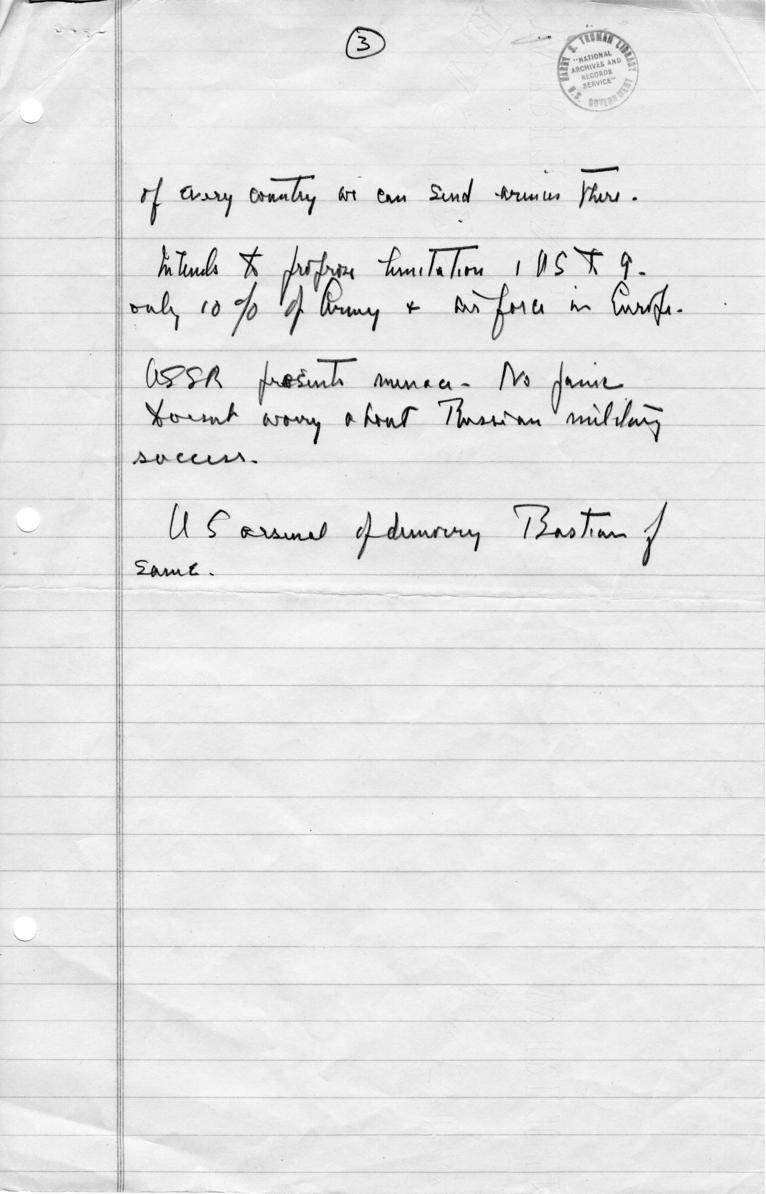 3
HARRY S. TRUMAN LIBRARY
"NATIONAL
ARCHIVES AND
RECORDS
SERVICE"
U.S. GOVERNMENT
of every country we can send armies there.
Intends to propose limitation 1 US to 9.
only 10 % of Army & air force in Europe.
USSR presents menace - No panic
Doesnt worry about Russian military
success.
US arsenal of democracy Bastian of
same.